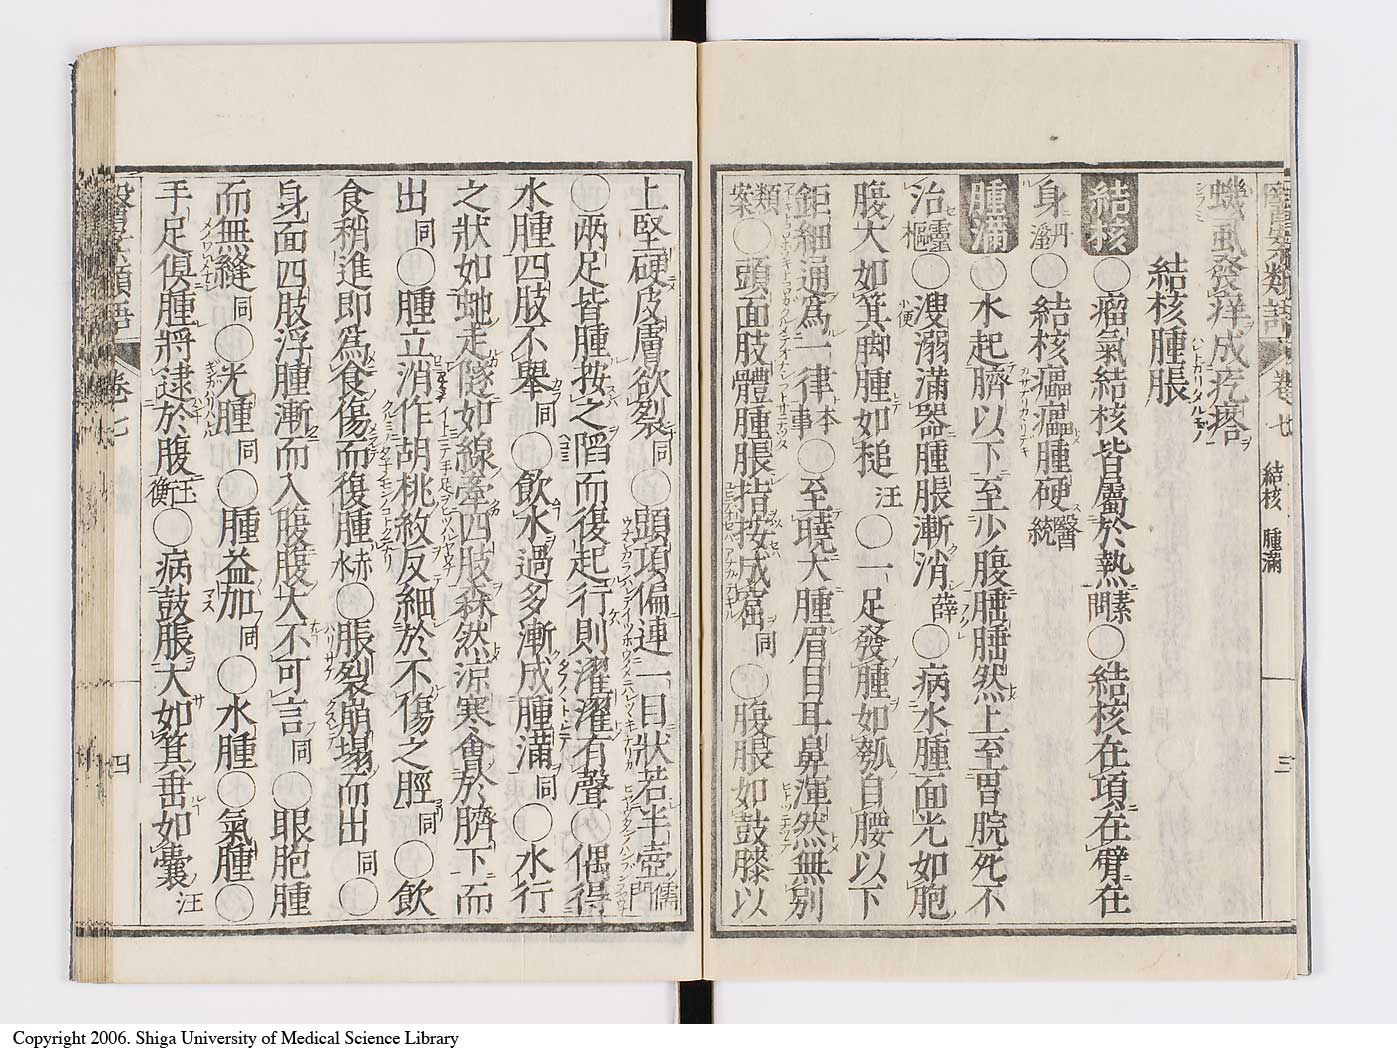 蟣虱發痒成疙瘩
結核腫脹
結核 ○瘤氣結核皆屬於熱素問○結核在項在臂在
身丹溪○結核㿈㿈腫硬醫統
腫滿 ○水起臍以下至少腹腫腫然上至胃脘死不
治靈樞○溲溺小便滿器腫脹漸消薛○病水腫面光如胞
腹大如箕脚腫如槌汪○一足發腫如瓠自腰以下
鉅細通爲一律本事○至曉大腫眉目耳鼻渾然無別
類案○頭面肢體腫脹指按成窟同○腹脹如鼓膝以
醫學類語 卷七 結核 腫滿 三
上堅硬皮膚欲裂同○頭項偏連一目狀若半壺儒門
○兩足皆腫按之陷而復起行則濯濯有聲○偶得
水腫四肢不舉同○飲水過多漸成腫滿同○水行
之狀如虵走隧如線牽四肢森然涼寒會於臍下而
出同○腫立消作胡桃紋反細於不傷之脛同○飲
食稍進即爲食傷而復腫赤水○脹裂崩塌而出同○
身面四肢浮腫漸而入腹腹大不可言同○眼胞腫
而無縫同○光腫同○腫益加同○水腫○氣腫○
手足俱腫將逮於腹玉衡○病鼓脹大如箕垂如囊汪
卷七 四
Copyright 2006. Shiga University of Medical Science Library